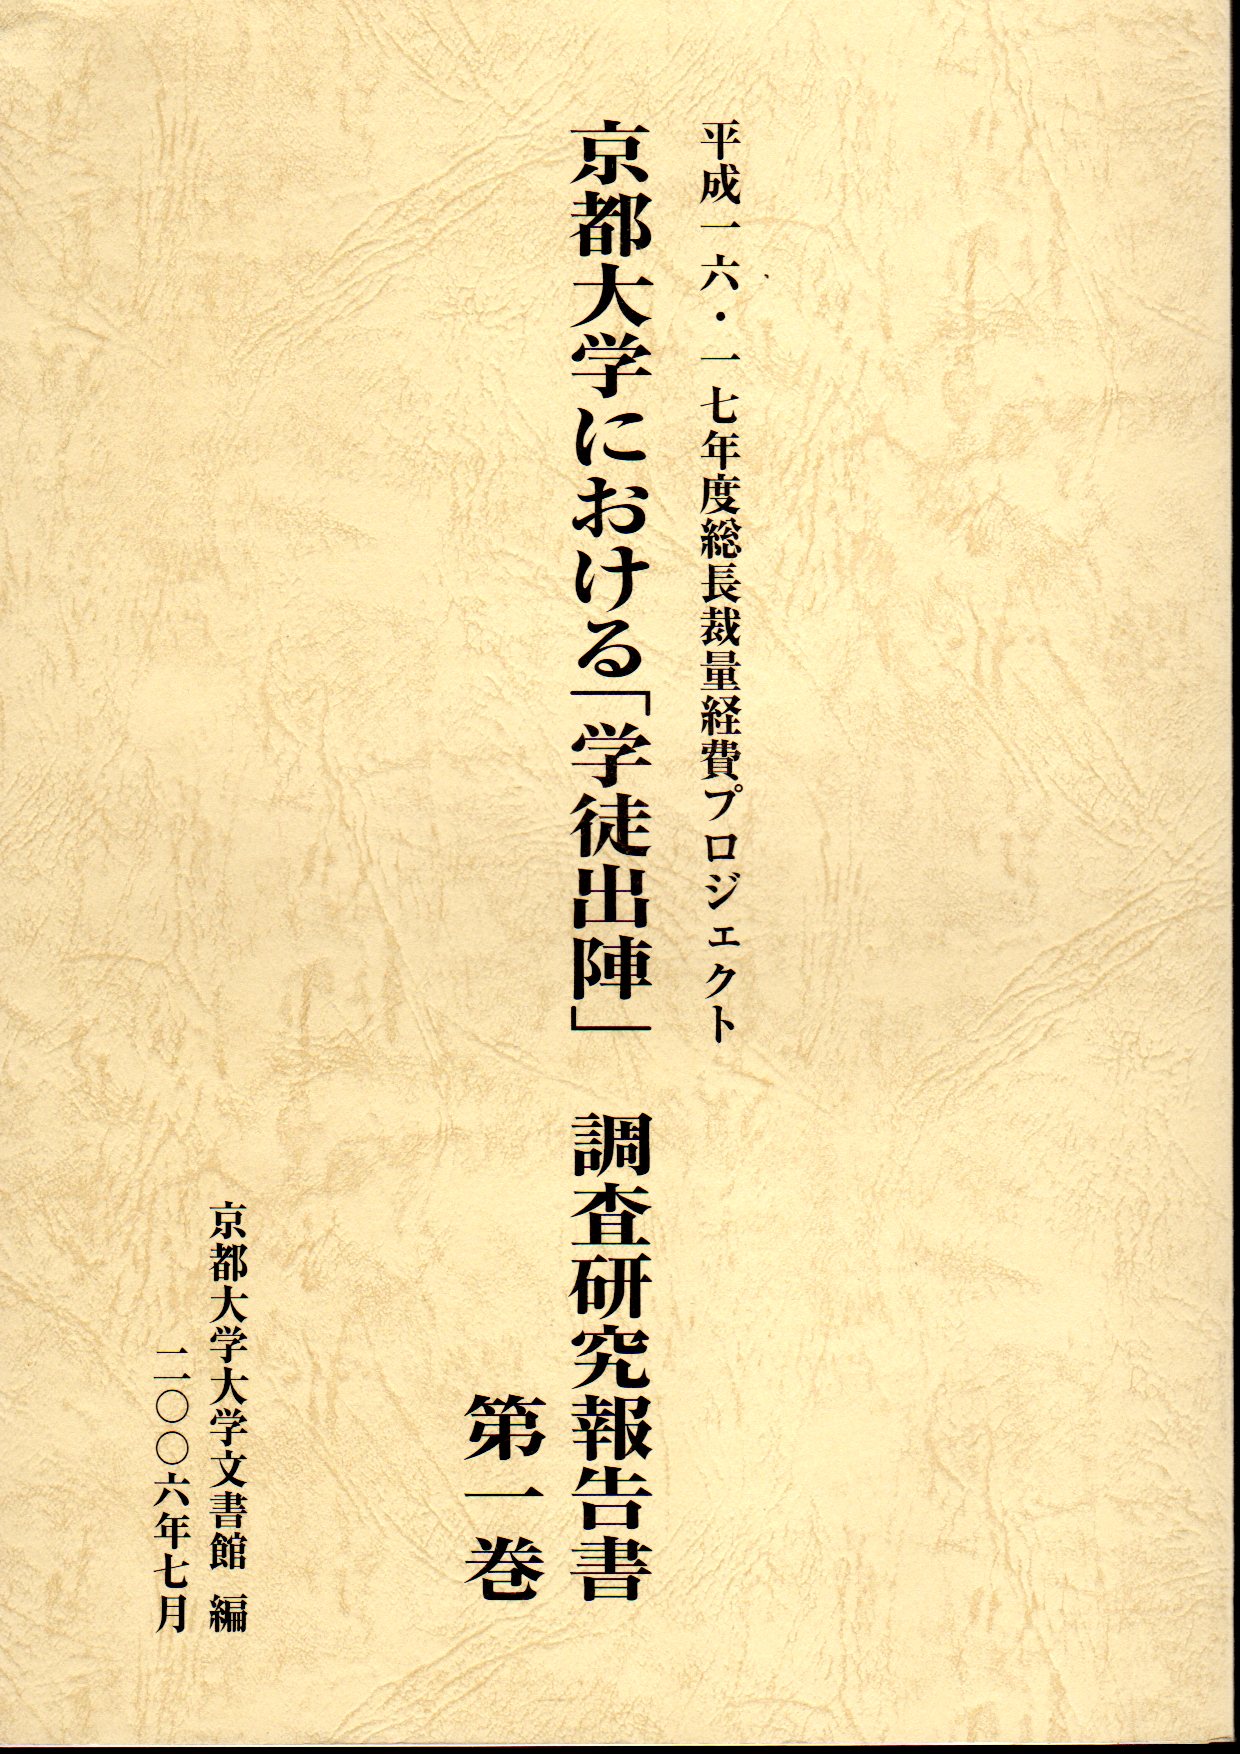 平成一六・一七年度総長裁量経費プロジェクト
京都大学における「学徒出陣」 調査研究報告書
第一巻
京都大学大学文書館 編
二〇〇六年七月